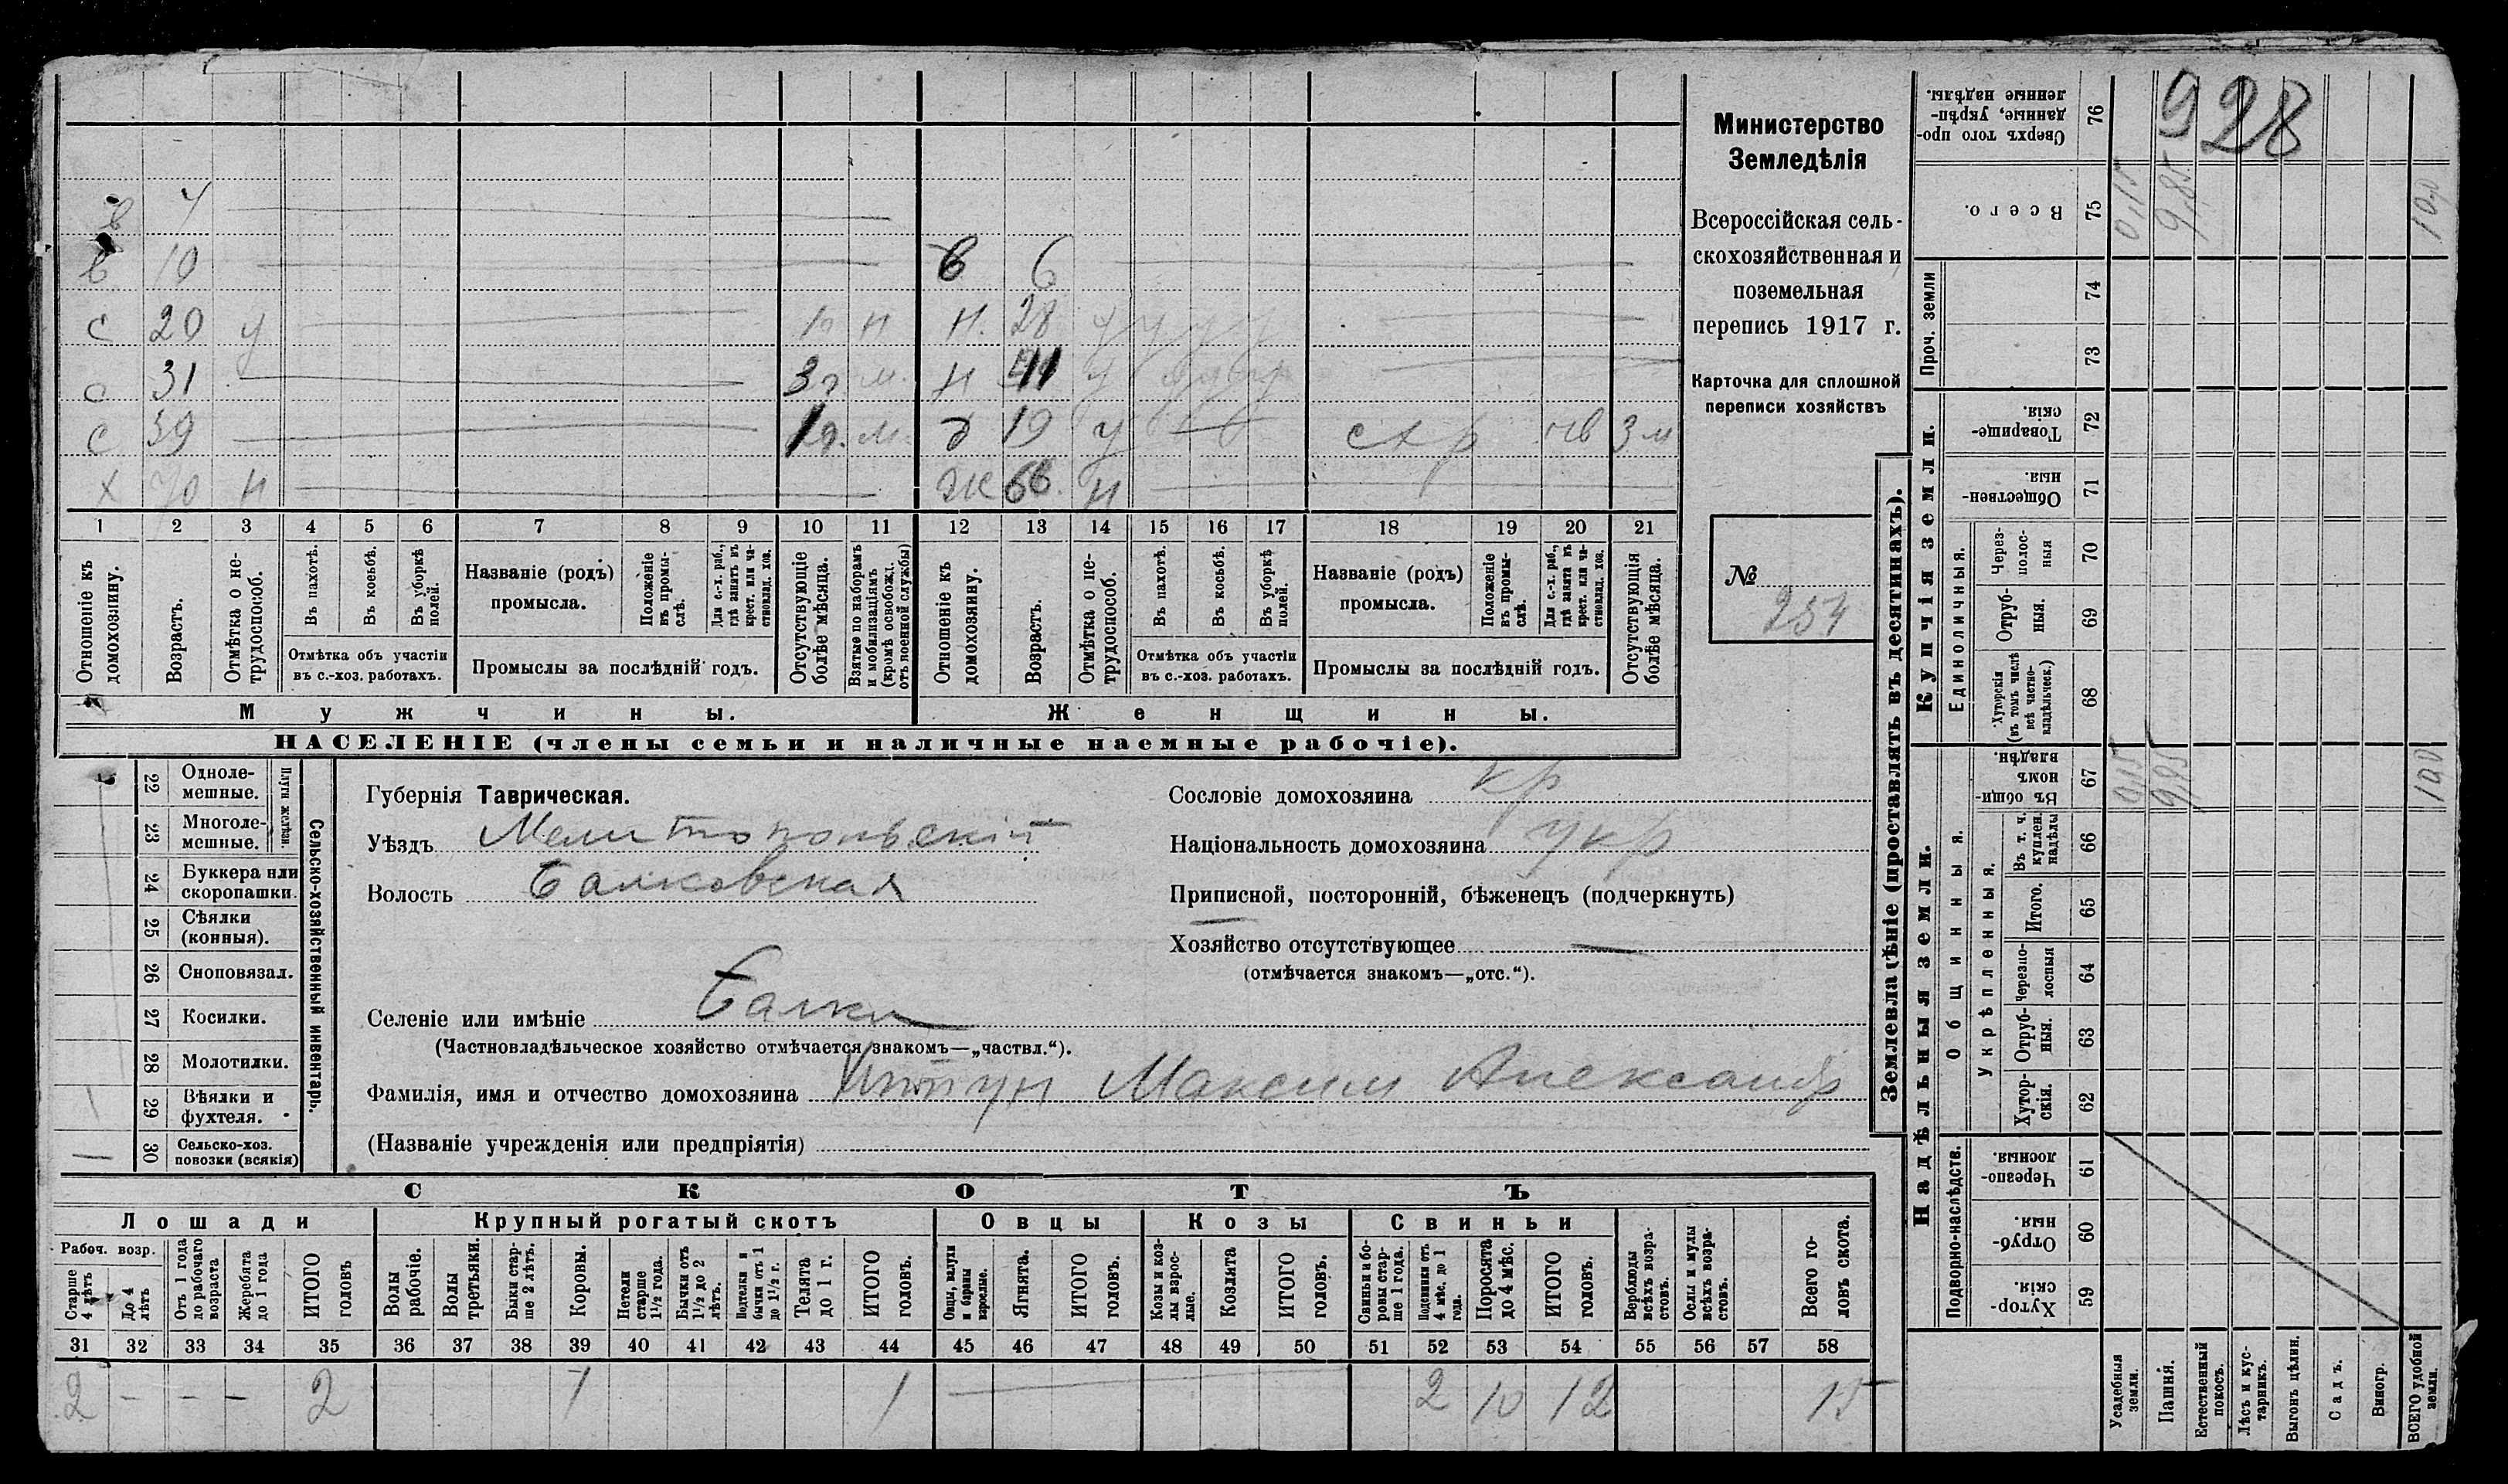 928
Министерство
Земледѣлія
Всероссійская сель-
скохозяйственная и
поземельная
перепись 1917 г.
Карточка для сплошной
переписи хозяйствъ
№
254
в 4
в 10 в 6
с 20 у н н. 28 у у у у
с 31 3 г. м. н 41 у
с 39 1 г. м. д 19 у с х р 3 м
х 70 н ж 66. н
1 2 3 4 5 6 7 8 9 10 11 12 13 14 15 16 17 18 19 20 21
Отношеніе къ домохозяину.
Возрастъ.
Отмѣтка о не-трудоспособ.
Въ пахотѣ.
Въ косьбѣ.
Въ уборкѣ полей.
Отмѣтка объ участіи
въ с.-хоз. работахъ.
Названіе (родъ)
промысла.
Положеніе въ промы-слѣ.
Для с.-х. раб., гдѣ занятъ въ крест. или ча-стновлад. хоз.
Промыслы за послѣдній годъ.
Отсутствующіе болѣе мѣсяца.
Взятые по наборамъ и мобилизаціямъ (кромѣ освобожд. отъ военной службы)
Отношеніе къ домохозяину.
Возрастъ.
Отмѣтка о не-трудоспособ.
Въ пахотѣ.
Въ косьбѣ.
Въ уборкѣ полей.
Отмѣтка объ участіи
въ с.-хоз. работахъ.
Названіе (родъ)
промысла.
Положеніе въ промы-слѣ.
Для с.-х. раб., гдѣ занята въ крест. или ча-стновлад. хоз.
Промыслы за послѣдній годъ.
Отсутствующія болѣе мѣсяца.
Мужчины. Женщины.
НАСЕЛЕНІЕ (члены семьи и наличные наемные рабочіе).
Сельско-хозяйственный инвентарь.
Плуги желѣзн.
22 Одноле-мешные.
23 Многоле-мешные.
24 Буккера или скоропашки.
25 Сѣялки (конныя).
26 Сноповязал.
27 Косилки.
28 Молотилки.
29 Вѣялки и фухтеля.
30 Сельско-хоз. повозки (всякія)
Губернія Таврическая.
Уѣздъ Мелитопольскій
Волость Балковская
Селеніе или имѣніе Балки
(Частновладѣльческое хозяйство отмѣчается знакомъ—„частвл.“).
Фамилія, имя и отчество домохозяина Максим Александр
(Названіе учрежденія или предпріятія)
Сословіе домохозяина кр
Національность домохозяина укр
Приписной, посторонній, бѣженецъ (подчеркнуть)
Хозяйство отсутствующее —
(отмѣчается знакомъ—„отс.“).
СКОТЪ
Лошади Крупный рогатый скотъ Овцы Козы Свиньи
Рабоч. возр.
Старше 4 лѣтъ
До 4 лѣтъ
Отъ 1 года до рабочаго возраста
Жеребята до 1 года
ИТОГО головъ
Волы рабочіе.
Волы третьяки.
Быки стар-ше 2 лѣтъ.
Коровы.
Нетели старше 1½ года.
Бычки отъ 1½ до 2 лѣтъ.
Подтелки и бычки отъ 1 до 1½ г.
Телята до 1 г.
ИТОГО головъ.
Овцы, валухи и бараны взрослые.
Ягнята.
ИТОГО головъ.
Козы и коз-лы взрос-лые.
Козлята
ИТОГО головъ.
Свиньи и бо-ровы стар-ше 1 года.
Подсвинки отъ 4 мѣс. до 1 года.
Поросята до 4 мѣс.
ИТОГО головъ.
Верблюды всѣхъ возра-стовъ.
Ослы и мулы всѣхъ возра-стовъ.
Всего го-ловъ скота.
31 32 33 34 35 36 37 38 39 40 41 42 43 44 45 46 47 48 49 50 51 52 53 54 55 56 57 58
2 – – – 2 1 1 2 10 12 15
Землевладѣніе (проставлять въ десятинахъ).
Надѣльныя земли. Купчія земли. Проч. земли
Подворно-наслѣдств.
Общинныя.
Укрѣпленныя.
Единоличныя.
59 Хутор-скія.
60 Отруб-ныя.
61 Черезпо-лосныя.
62 Хутор-скія.
63 Отруб-ныя.
64 Черезпо-лосныя
65 Итого.
66 Въ т. ч. куплен. надѣлы
67 Въ общи-номъ владѣн. 0,15 9,85 10,0
68 Хуторскія (въ томъ числѣ всѣ частно-владѣльческ.)
69 Отруб-ныя.
70 Через-полос-ныя
71 Обществен-ныя.
72 Товарище-скія.
73
74
75 Всего. 0,15 9,85 10,0
76 Сверхъ того про-данные, укрѣп-ленные надѣлы.
Усадебныя земли.
Пашня.
Естественный покосъ.
Лѣсъ и кус-тарникъ.
Выгонъ цѣлин.
Садъ.
Виногр.
ВСЕГО удобной земли.